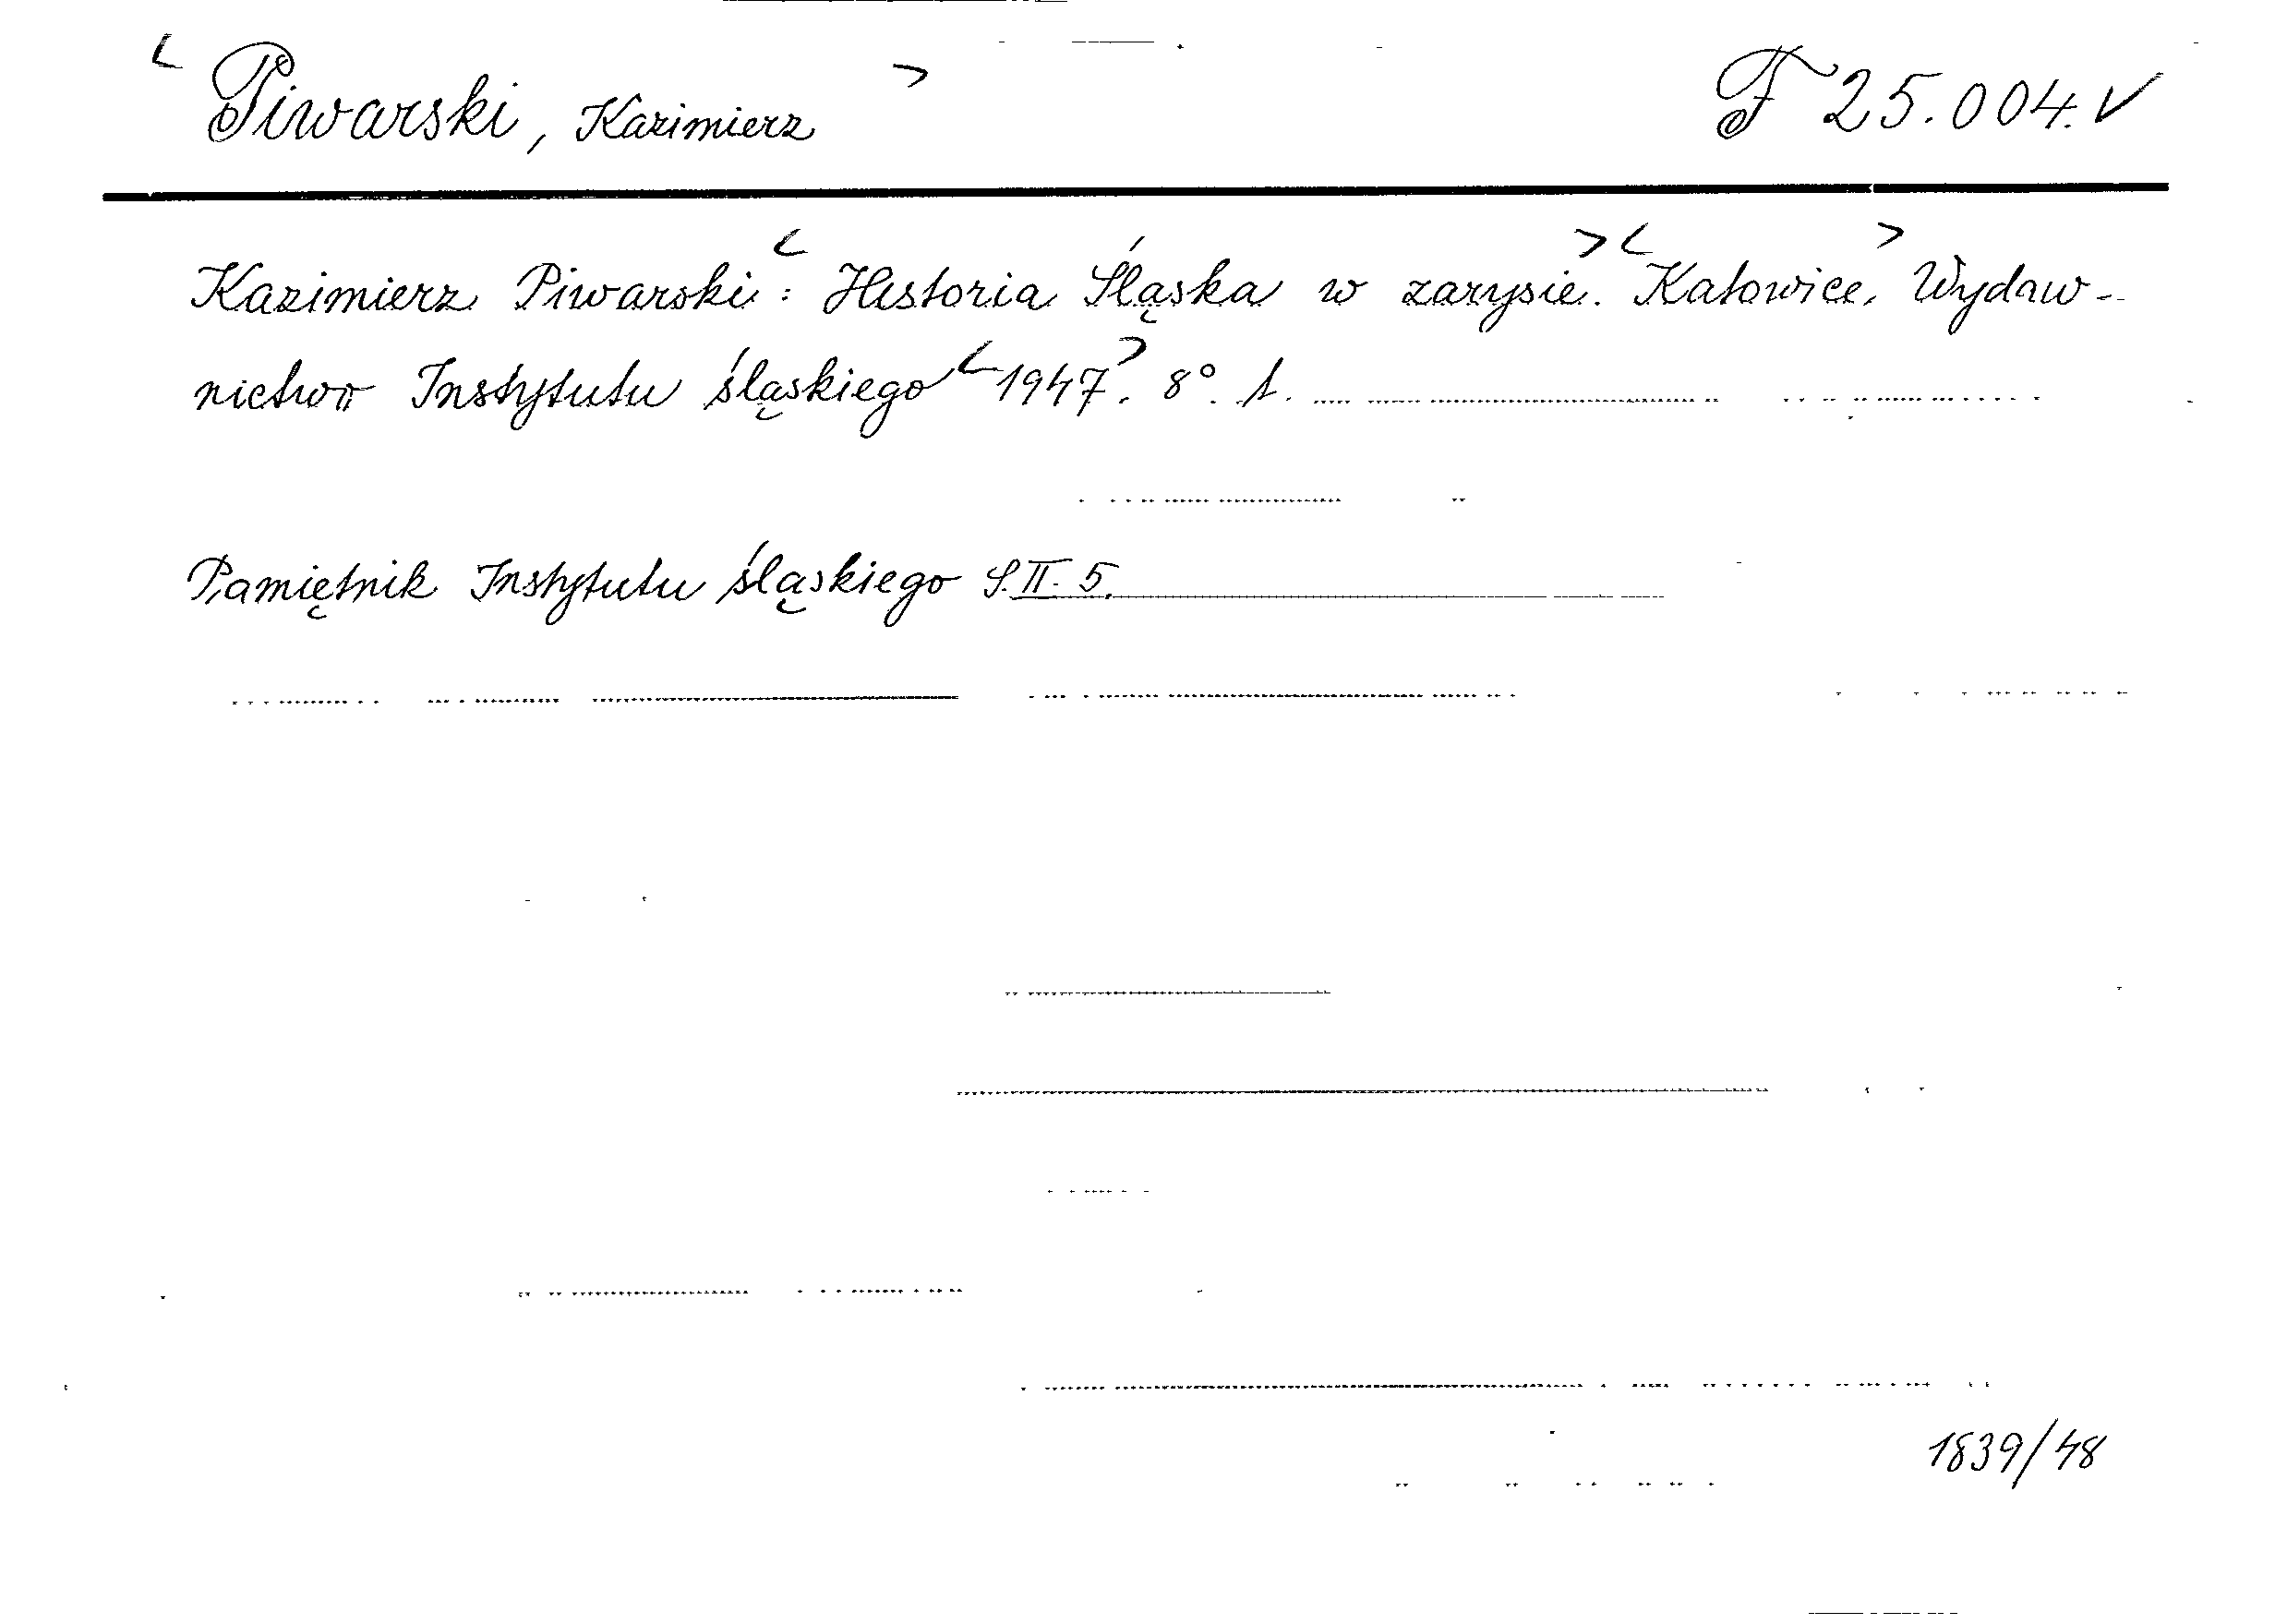 < Piwarski, Kazimierz > F 25.004. ✓
Kazimierz Piwarski: < Historia Śląska w zarysie. > < Katowice, > Wydaw-
nictwo Instytutu śląskiego < 1947. > 8°. 1.
Pamiętnik Instytutu śląskiego S. II. 5.
1839/48